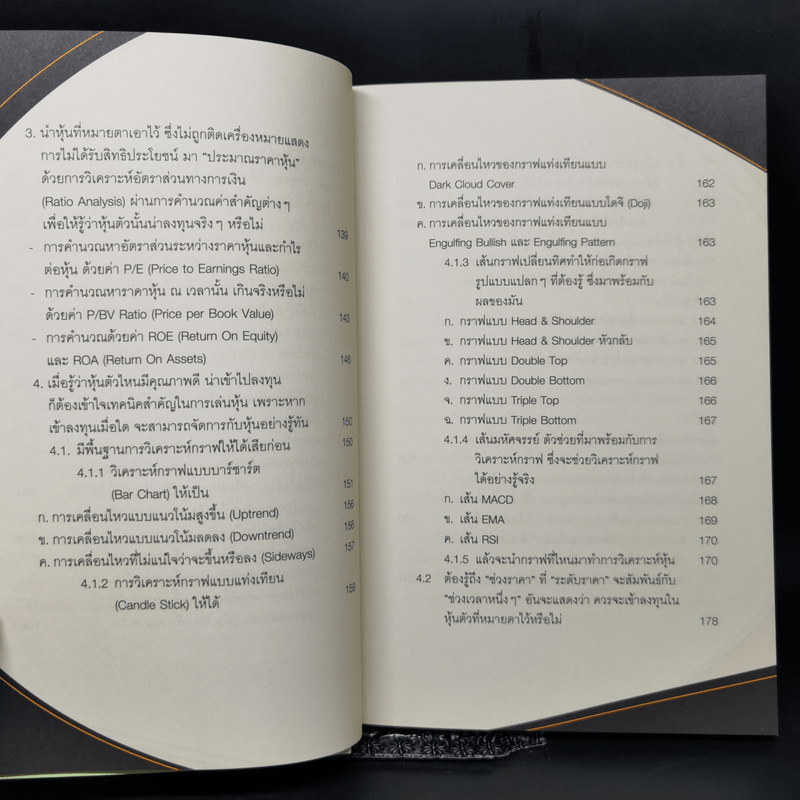 3. นำหุ้นที่หมายตาเอาไว้ ซึ่งไม่ถูกติดเครื่องหมายแสดง
การไม่ได้รับสิทธิประโยชน์ มา "ประมาณราคาหุ้น"
ด้วยการวิเคราะห์อัตราส่วนทางการเงิน
(Ratio Analysis) ผ่านการคำนวณค่าสำคัญต่างๆ
เพื่อให้รู้ว่าหุ้นตัวนั้นน่าลงทุนจริงๆ หรือไม่ 139
- การคำนวณหาอัตราส่วนระหว่างราคาหุ้นและกำไร
ต่อหุ้น ด้วยค่า P/E (Price to Earnings Ratio) 140
- การคำนวณหาราคาหุ้น ณ เวลานั้น เกินจริงหรือไม่
ด้วยค่า P/BV Ratio (Price per Book Value) 143
- การคำนวณด้วยค่า ROE (Return On Equity)
และ ROA (Return On Assets) 146
4. เมื่อรู้ว่าหุ้นตัวไหนมีคุณภาพดี น่าเข้าไปลงทุน
ก็ต้องเข้าใจเทคนิคสำคัญในการเล่นหุ้น เพราะหาก
เข้าลงทุนเมื่อใด จะสามารถจัดการกับหุ้นอย่างรู้ทัน 150
4.1. มีพื้นฐานการวิเคราะห์กราฟให้ได้เสียก่อน 150
4.1.1 วิเคราะห์กราฟแบบบาร์ชาร์ต
(Bar Chart) ให้เป็น 151
ก. การเคลื่อนไหวแบบแนวโน้มสูงขึ้น (Uptrend) 156
ข. การเคลื่อนไหวแบบแนวโน้มลดลง (Downtrend) 156
ค. การเคลื่อนไหวที่ไม่แน่ใจว่าจะขึ้นหรือลง (Sideways) 157
4.1.2 การวิเคราะห์กราฟแบบแท่งเทียน
(Candle Stick) ให้ได้ 159
ก. การเคลื่อนไหวของกราฟแท่งเทียนแบบ
Dark Cloud Cover 162
ข. การเคลื่อนไหวของกราฟแท่งเทียนแบบโดจิ (Doji) 163
ค. การเคลื่อนไหวของกราฟแท่งเทียนแบบ
Engulfing Bullish และ Engulfing Pattern 163
4.1.3 เส้นกราฟเปลี่ยนทิศทำให้ก่อเกิดกราฟ
รูปแบบแปลกๆ ที่ต้องรู้ ซึ่งมาพร้อมกับ
ผลของมัน 163
ก. กราฟแบบ Head & Shoulder 164
ข. กราฟแบบ Head & Shoulder หัวกลับ 165
ค. กราฟแบบ Double Top 165
ง. กราฟแบบ Double Bottom 166
จ. กราฟแบบ Triple Top 166
ฉ. กราฟแบบ Triple Bottom 167
4.1.4 เส้นมหัศจรรย์ ตัวช่วยที่มาพร้อมกับการ
วิเคราะห์กราฟ ซึ่งจะช่วยวิเคราะห์กราฟ
ได้อย่างรู้จริง 167
ก. เส้น MACD 168
ข. เส้น EMA 169
ค. เส้น RSI 170
4.1.5 แล้วจะนำกราฟที่ไหนมาทำการวิเคราะห์หุ้น 170
4.2 ต้องรู้ถึง "ช่วงราคา" ที่ "ระดับราคา" จะสัมพันธ์กับ
"ช่วงเวลาหนึ่งๆ" อันจะแสดงว่า ควรจะเข้าลงทุนใน
หุ้นตัวที่หมายตาไว้หรือไม่ 178